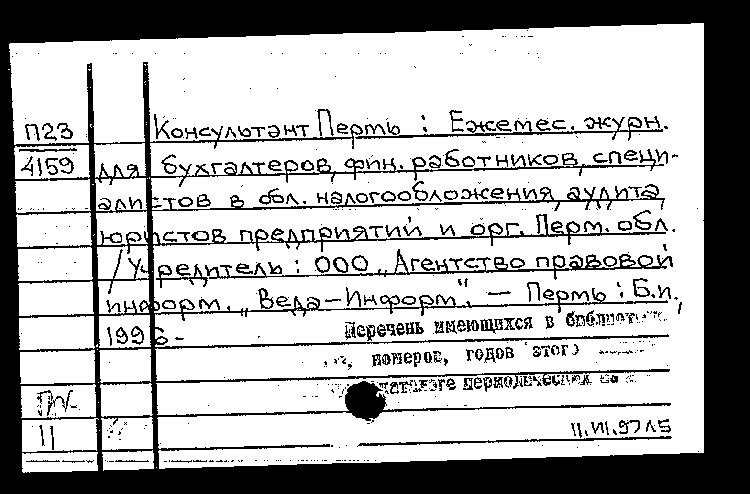 П23 Консультант Пермь : Ежемес. журн.
4159 для бухгалтеров, фин. работников, специ-
алистов в обл. налогообложения, аудита,
юристов предприятий и орг. Перм. обл.
/ Учредитель : ООО „Агентство правовой
информ. „Веда-Информ". — Пермь : Б.и.,
1996-
Перечень имеющихся в
номеров, годов этого
периодических
11
11.VII.97